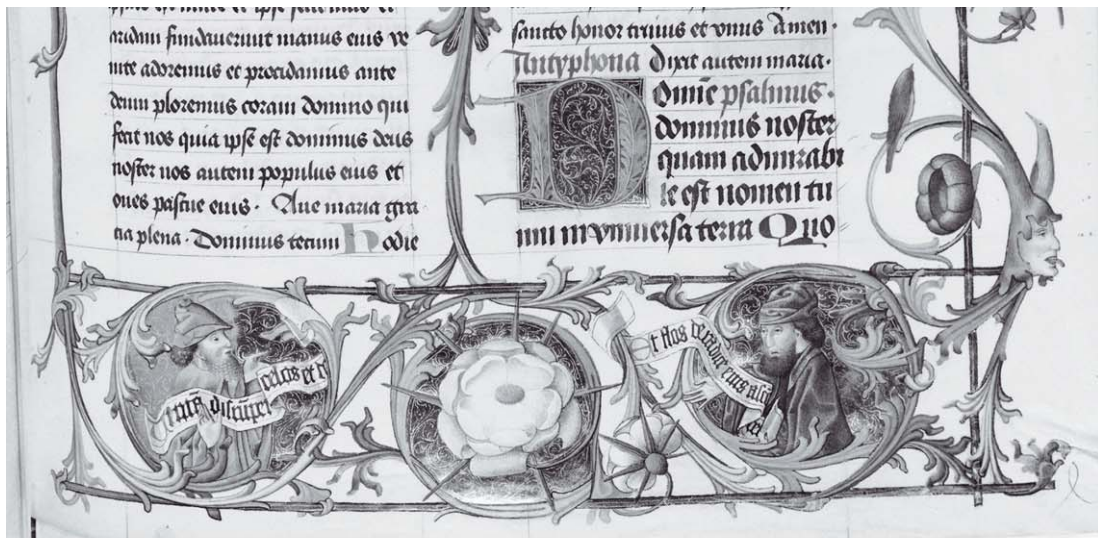 et ipse fecit illud et
aridam fundaverunt manus eius ve
nite adoremus et procidamus ante
deum ploremus coram domino qui
fecit nos quia ipse est dominus deus
noster nos autem populus eius et
oues pascue eius · Aue maria gra
tia plena · Dominus tecum Hodie
sancto honor trinus et vnus Amen ·
Antyphona Dixit autem maria ·
Domine psalmus ·
dominus noster
quam admirabi
le est nomen tu
um in vniuersa terra Quo
celos et d
Et flos de radice eius asce